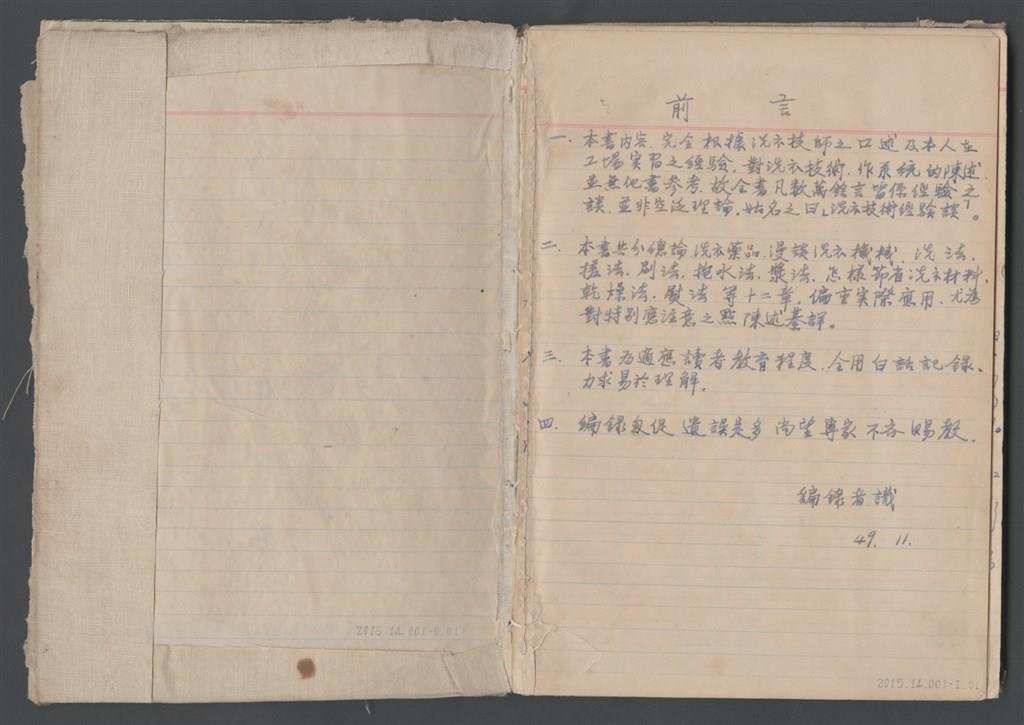 前言
一. 本書內容.完全根據洗衣技師之口述及本人在
工場實習之經驗.對洗衣技術.作系統的陳述.
並無他書參考.故全書凡數萬餘言皆係經驗之
談.並非空泛理論.姑名之曰「洗衣技術經驗談」。
二. 本書共分總論.洗衣藥品.漫談洗衣機械.洗法.
搓法.刷法.拖水法.漿法.怎樣節省洗衣材料.
乾燥法.熨法等十二章.偏重實際應用.尤為
對特別應注意之點陳述綦詳。
三. 本書為適應讀者教育程度.全用白話記錄.
力求易於理解.
四. 編錄匆促 遺誤是多 尚望專家不吝賜教.
編錄者識
49. 11.
2015.14.001-0.01
2015.14.001-1.01